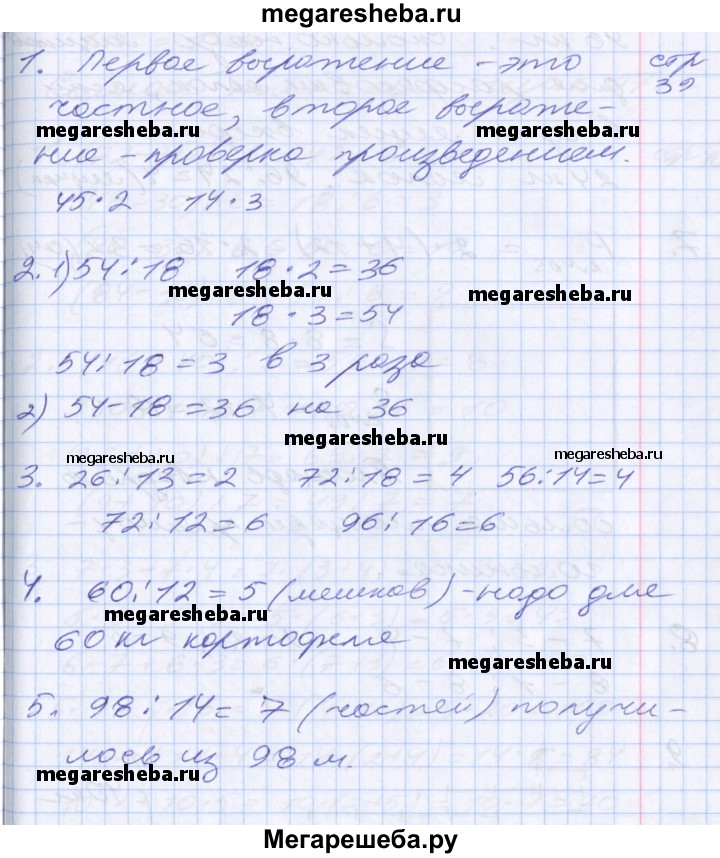 megaresheba.ru
1. Первое выражение - это стр
частное, второе выраже- 39
megaresheba.ru megaresheba.ru
ние - проверка произведением.
45·2 14·3
2. 1) 54:18 18·2=36
megaresheba.ru megaresheba.ru
18·3=54
54:18=3 в 3 раза
2) 54-18=36 на 36
megaresheba.ru
megaresheba.ru megaresheba.ru
3. 26:13=2 72:18=4 56:14=4
72:12=6 96:16=6
megaresheba.ru
4. 60:12=5 (мешков) - надо для
megaresheba.ru
60 кг картофеля
megaresheba.ru
5. 98:14=7 (частей) получи-
лось из 98 м.
megaresheba.ru megaresheba.ru
Мегарешеба.ру